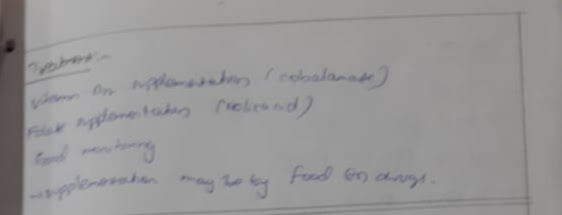 Treatment:-
Vitamin B12 supplementation (cobalamate)
Folate supplementation (Folic acid)
Food monitoring
→supplementation may be by food or drugs.